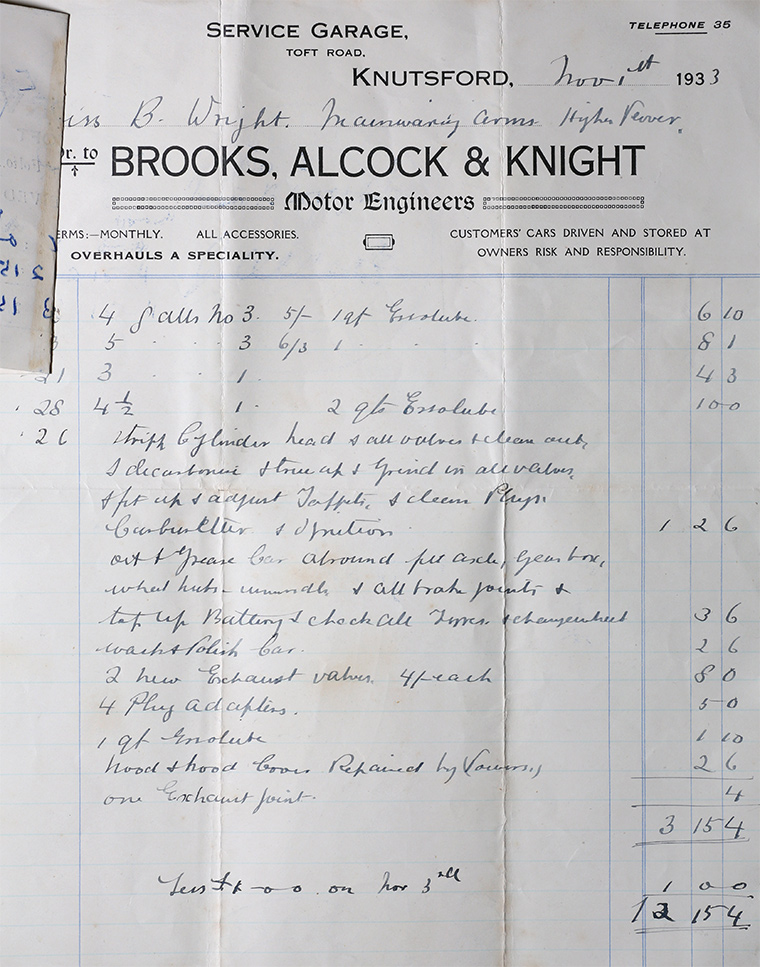 SERVICE GARAGE,
TOFT ROAD.
TELEPHONE 35
KNUTSFORD, Nov 1st 1933
iss B. Wright. Mainwaring Arms Higher Peover.
Dr. to BROOKS, ALCOCK & KNIGHT
Motor Engineers
ERMS:—MONTHLY. ALL ACCESSORIES.
OVERHAULS A SPECIALITY.
CUSTOMERS' CARS DRIVEN AND STORED AT
OWNERS RISK AND RESPONSIBILITY.
4 galls No 3. 5/- 1 qt Essolube. 6 10
5 " " 3 6/3 1 " " 8 1
21 3 " " 1 " 4 3
28 4 1/2 1 " 2 qts Essolube 10 0
26 stripp Cylinder head & all valves & clean out,
& decarbonise & true up & Grind in all valves,
& fit up & adjust Tappits, & clean Plugs.
Carburetter & Ignition. 1 2 6
oil & Grease Car around axle, Gear box,
wheel hubs & all brake joints &
top up Battery & check all Tyres & change wheel 3 6
wash & Polish Car. 2 6
2 new Exhaust valves. 4/- each 8 0
4 Plug Adapters. 5 0
1 qt Essolube 1 10
hood & hood Cover Repaired by 2 6
one Exhaust joint. 4
3 15 4
Less £1-0-0. on Nov 3rd 1 0 0
2 15 4